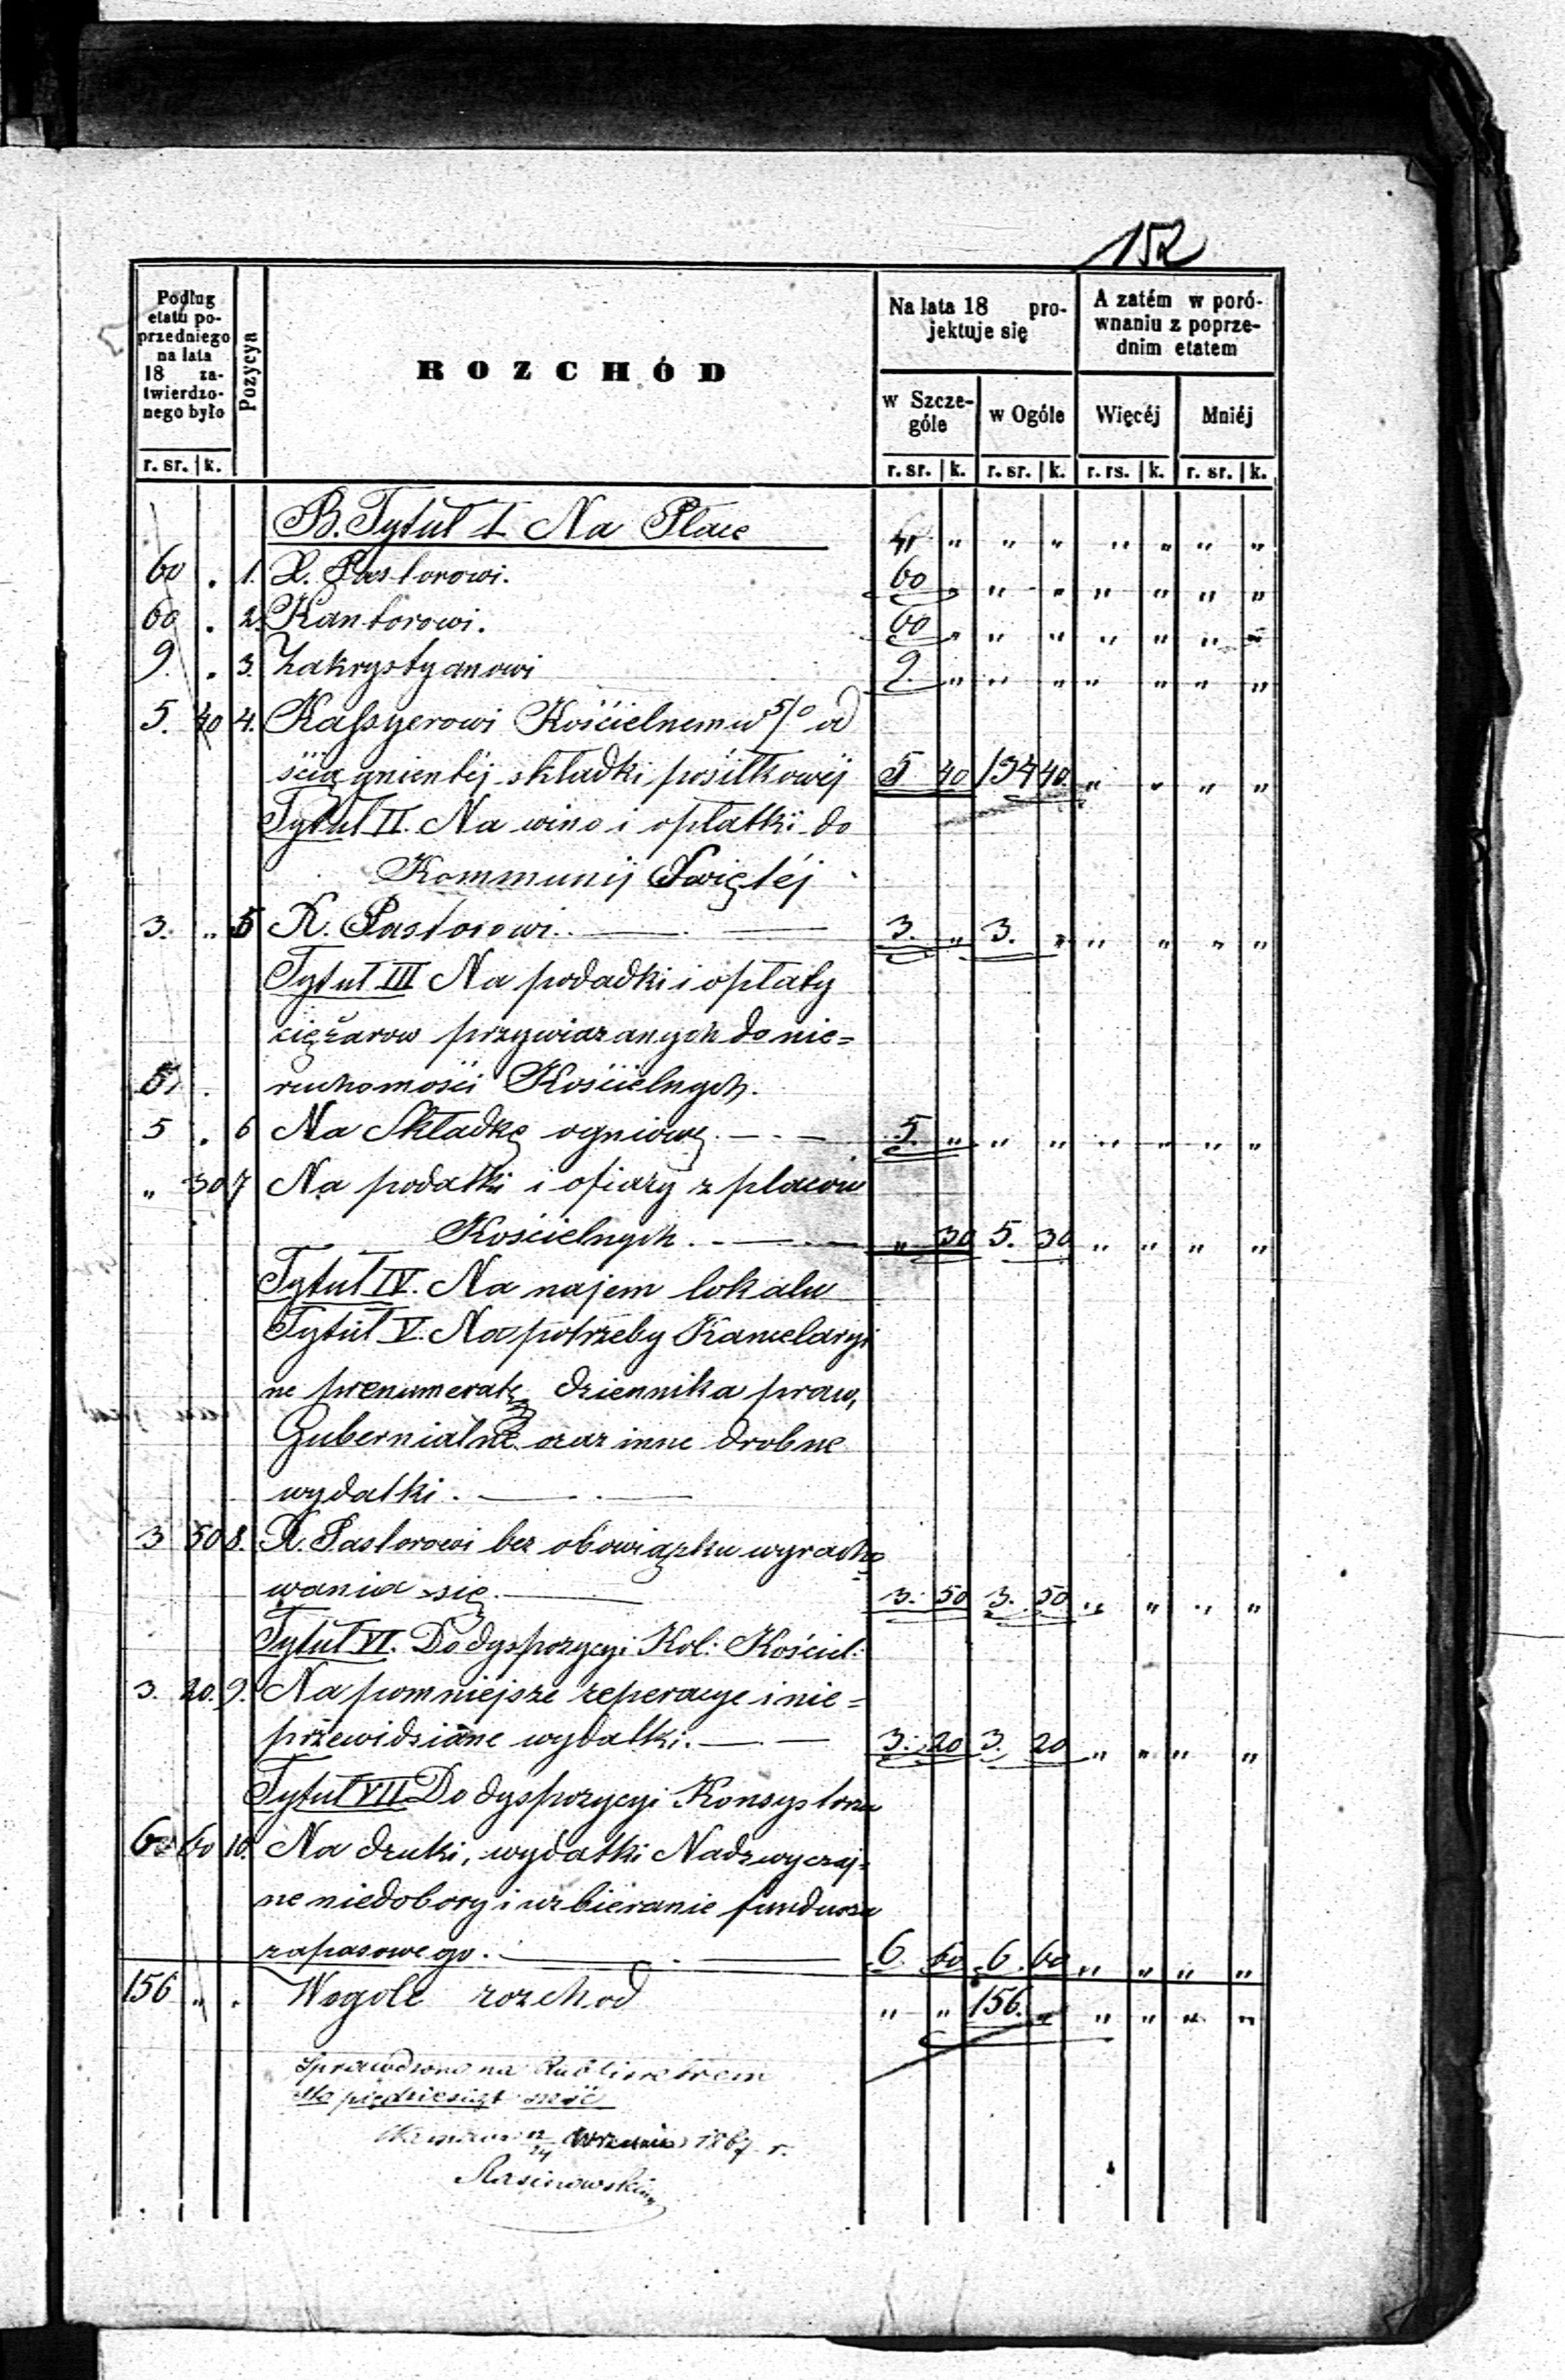 152
Podług etatu po-przedniego na lata 18 za-twierdzo-nego było
Pozycya
ROZCHÓD
Na lata 18 pro-jektuje się
A zatém w poró-wnaniu z poprze-dnim etatem
w Szcze-góle
w Ogóle
Więcéj
Mniéj
r. sr. k.
r. sr. k. r. sr. k. r. rs. k. r. sr. k.
B. Tytuł I Na Płace " " " " " " "
60 . 1. X. Pastorowi. 60 " " " " " " "
60 . 2. Kantorowi. 60 " " " " " " "
9. . 3. Zakrystyanowi 9. " " " " " " "
5. 40 4. Kassyerowi Kościelnemu 5/0 od
ściągnientéj składki posiłkowéj 5 40 134 40 " " " "
Tytuł II. Na wino i opłatki do
Kommunij Świętéj
3. " 5 X. Pastorowi. 3. " 3. " " " " "
Tytuł III Na podadki i opłaty
ciężarow przywiazanych do nie=
ruchomości Kościelnych.
5 . 6 Na Składkę ogniową. 5. " " " " " " "
" 30 7 Na podatki i ofiary z placow
Kościelnych. " 30 5. 30 " " " "
Tytuł IV. Na najem lokalu
Tytuł V. Na potrzeby Kancelaryi
ne prenumeratę dziennika praw,
Gubernialne oraz inne drobne
wydatki.
3 50 8. X. Pastorowi bez obowiązku wyracho
wania się. 3. 50 3. 50 " " " "
Tytuł VI. Do dyspozycyi Kol: Kościel:
3. 20. 9. Na pomniejsze reperacye i nie=
przewidziane wydatki. 3. 20 3. 20 " " " "
Tytuł VII Do dyspozycyi Konsystorza
6 60 10. Na druki, wydatki Nadzwyczaj=
ne niedobory i uzbieranie funduszu
zapasowego. 6. 60 6. 60 " " " "
156 " . Wogole rozchod " " 156. " " " " "
Sprawdzono na Rubli srebrem
sto pięćdziesiąt sześć
12/24 Września 1867 r.